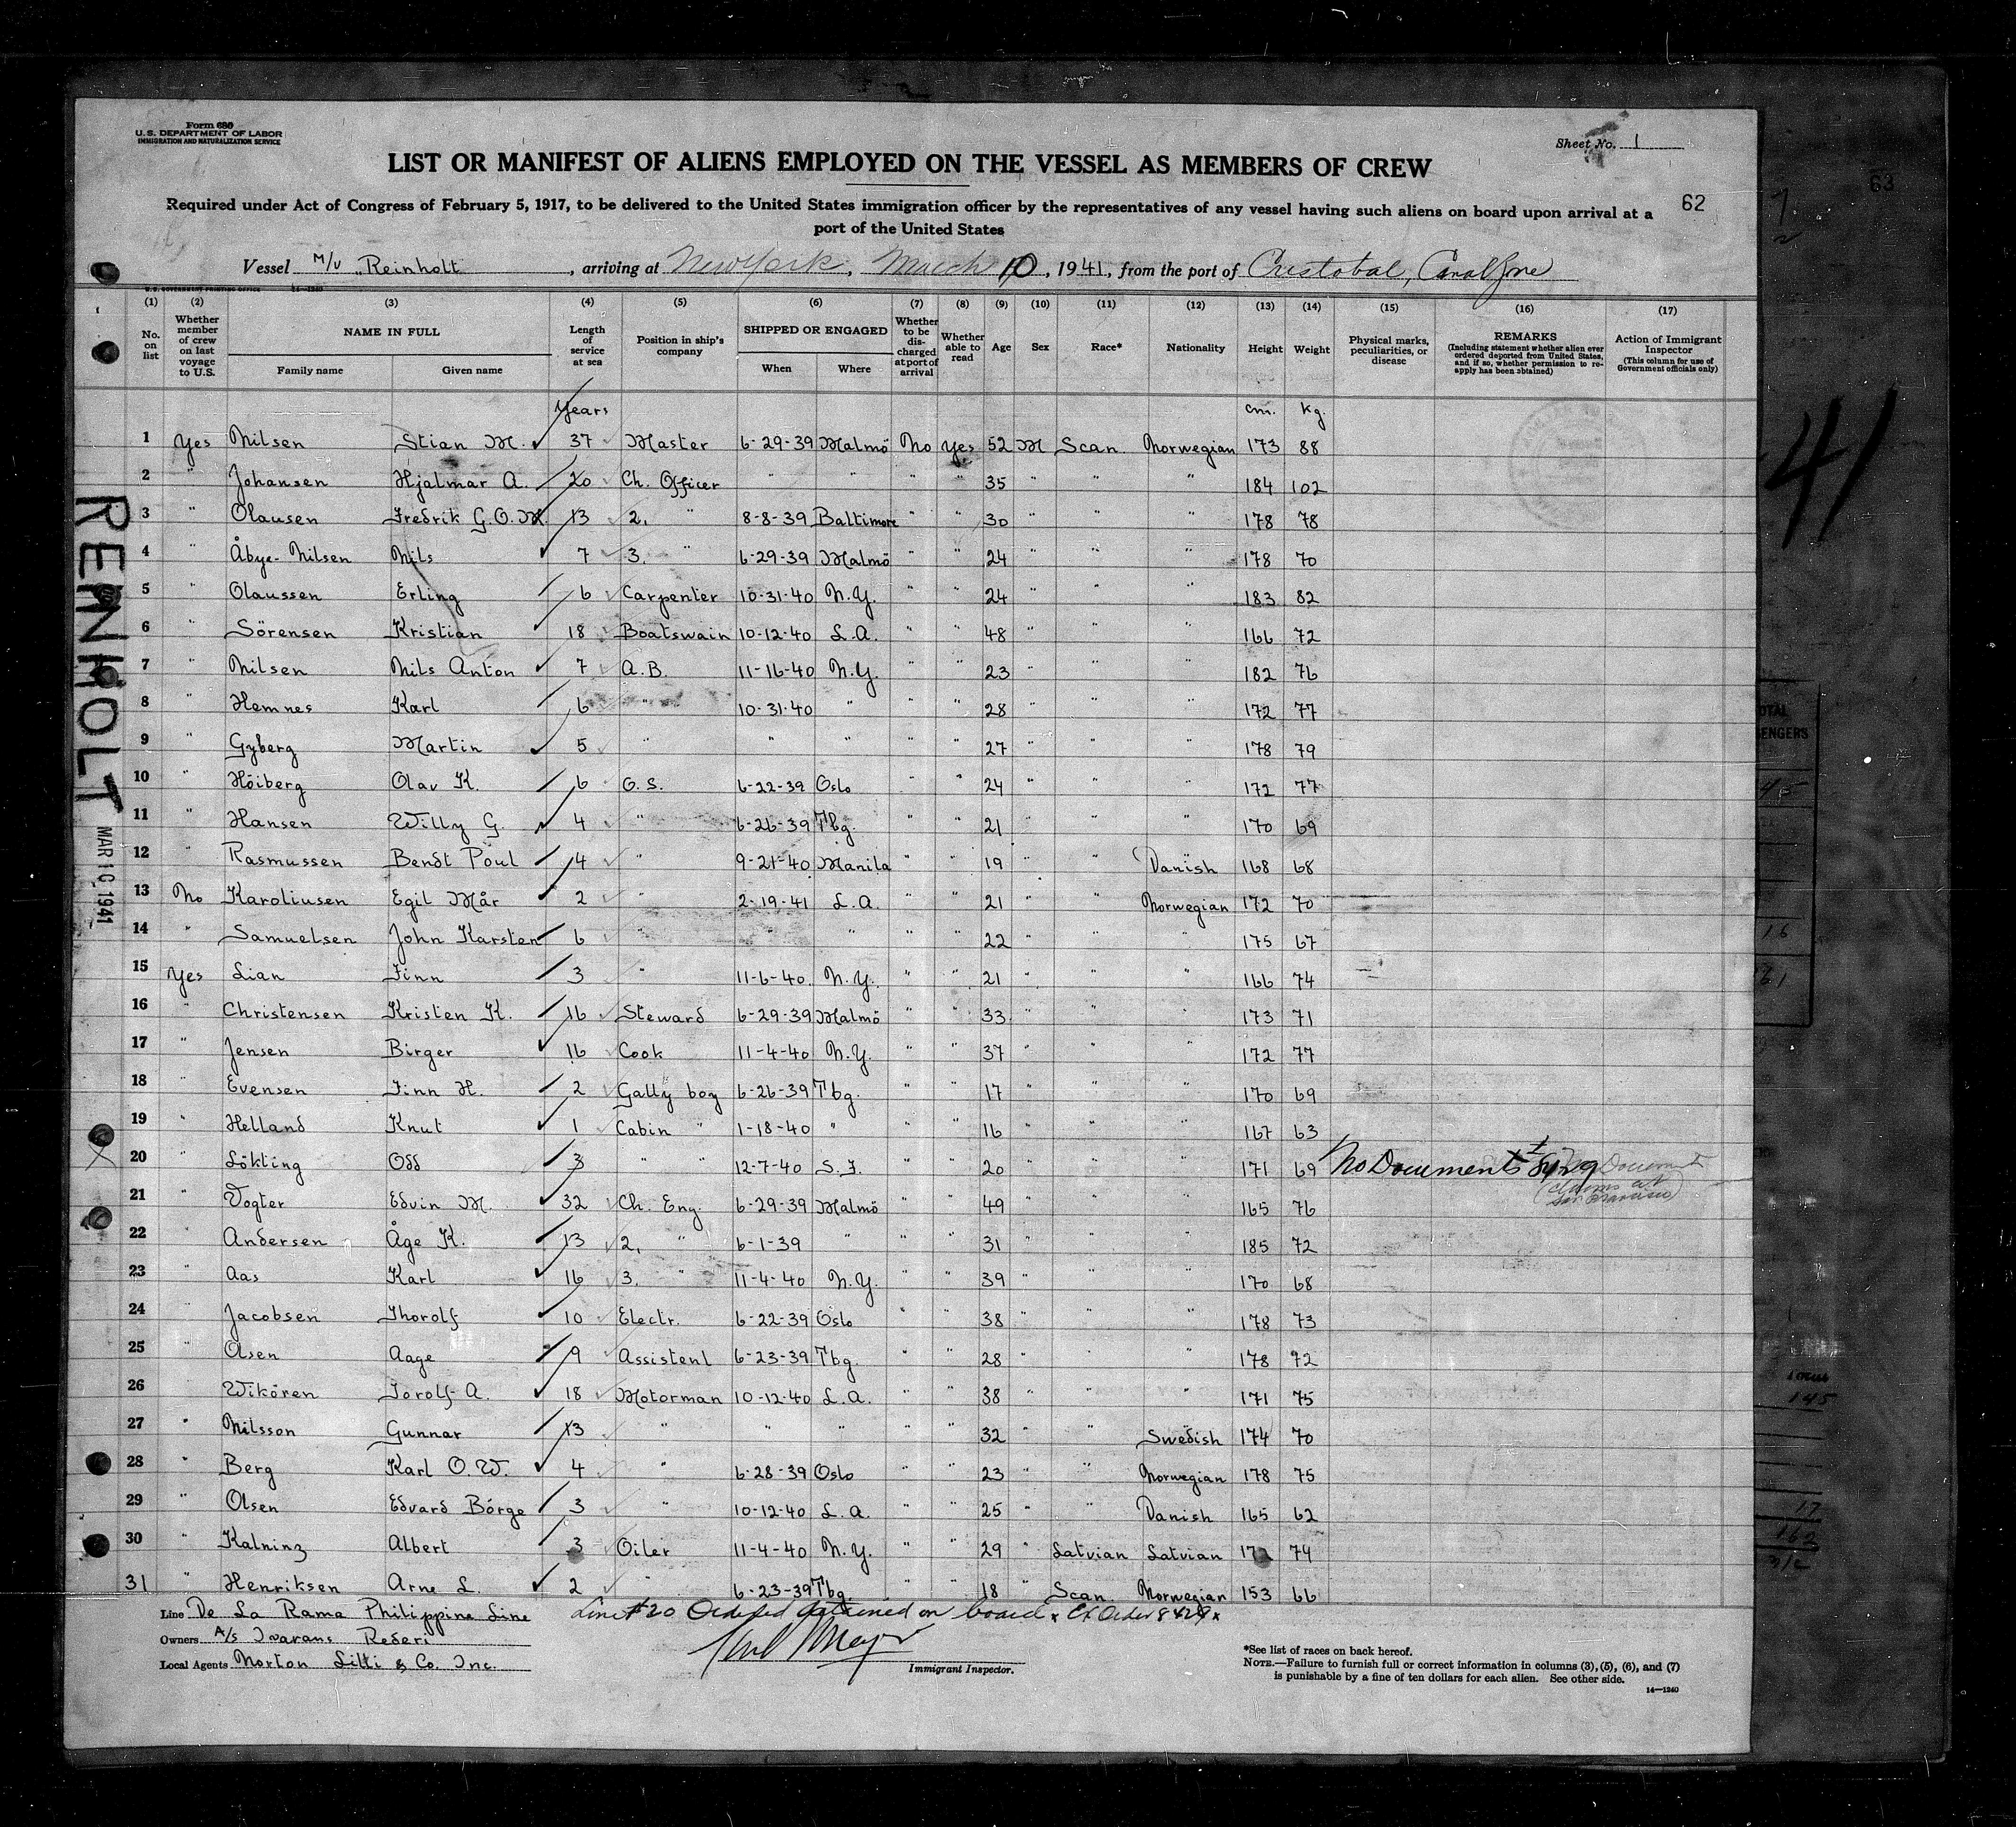 Form 680
U.S. DEPARTMENT OF LABOR
IMMIGRATION AND NATURALIZATION SERVICE
Sheet No. 1
LIST OR MANIFEST OF ALIENS EMPLOYED ON THE VESSEL AS MEMBERS OF CREW
62
63
Required under Act of Congress of February 5, 1917, to be delivered to the United States immigration officer by the representatives of any vessel having such aliens on board upon arrival at a
port of the United States
Vessel M/V "Reinholt, arriving at New York, March 10, 1941, from the port of Cristobal, Canal Zone
(1) (2) (3) (4) (5) (6) (7) (8) (9) (10) (11) (12) (13) (14) (15) (16) (17)
No. on list
Whether member of crew on last voyage to U.S.
NAME IN FULL
Family name Given name
Length of service at sea
Position in ship's company
SHIPPED OR ENGAGED
When Where
Whether to be discharged at port of arrival
Whether able to read
Age Sex Race* Nationality Height Weight
Physical marks, peculiarities, or disease
REMARKS
(Including statement whether alien ever ordered deported from United States, and if so, whether permission to reapply has been obtained)
Action of Immigrant Inspector
(This column for use of Government officials only)
Years cm. kg.
1 Yes Nilsen Stian M. 37 Master 6-29-39 Malmö No Yes 52 M Scan. Norwegian 173 88
2 " Johansen Hjalmar A. 20 Ch. Officer " " " " 35 " " " 184 102
3 " Olausen Fredrik G.O.M. 13 2. " 8-8-39 Baltimore " " 30 " " " 178 78
4 " Åbye-Nilsen Nils 7 3. " 6-29-39 Malmö " " 24 " " " 178 70
5 " Olaussen Erling 6 Carpenter 10-31-40 N.Y. " " 24 " " " 183 82
6 " Sörensen Kristian 18 Boatswain 10-12-40 L.A. " " 48 " " " 166 72
7 " Nilsen Nils Anton 7 A.B. 11-16-40 N.Y. " " 23 " " " 182 76
8 " Hemnes Karl 6 " 10-31-40 " " " 28 " " " 172 77
9 " Gyberg Martin 5 " " " " " 27 " " " 178 79
10 " Höiberg Olav K. 6 O.S. 6-22-39 Oslo " " 24 " " " 172 77
11 " Hansen Willy G. 4 " 6-26-39 Tbg. " " 21 " " " 170 69
12 " Rasmussen Bendt Poul 4 " 9-21-40 Manila " " 19 " " Danish 168 68
13 No Karoliusen Egil Mår 2 " 2-19-41 L.A. " " 21 " " Norwegian 172 70
14 " Samuelsen John Karsten 6 " " " " " 22 " " " 175 67
15 Yes Lian Finn 3 " 11-6-40 N.Y. " " 21 " " " 166 74
16 " Christensen Kristen K. 16 Steward 6-29-39 Malmö " " 33 " " " 173 71
17 " Jensen Birger 16 Cook 11-4-40 N.Y. " " 37 " " " 172 77
18 " Evensen Finn H. 2 Gally boy 6-26-39 Tbg. " " 17 " " " 170 69
19 " Helland Knut 1 Cabin " 1-18-40 " " " 16 " " " 167 63
20 " Lökting Odd 3 " " 12-7-40 S.F. " " 20 " " " 171 69 No Documents
(Claims at San Francisco)
21 " Vogter Edvin M. 32 Ch. Eng. 6-29-39 Malmö " " 49 " " " 165 76
22 " Andersen Åge K. 13 2. " 6-1-39 " " " 31 " " " 185 72
23 " Aas Karl 16 3. " 11-4-40 N.Y. " " 39 " " " 170 68
24 " Jacobsen Thorolf 10 Electr. 6-22-39 Oslo " " 38 " " " 178 73
25 " Olsen Aage 9 Assistent 6-23-39 Tbg. " " 28 " " " 178 72
26 " Wikören Torolf A. 18 Motorman 10-12-40 L.A. " " 38 " " " 171 75
27 " Nilsson Gunnar 13 " " " " " 32 " " Swedish 174 70
28 " Berg Karl O.W. 4 " 6-28-39 Oslo " " 23 " " Norwegian 178 75
29 " Olsen Edvard Börge 3 " 10-12-40 L.A. " " 25 " " Danish 165 62
30 " Kalninz Albert 3 Oiler 11-4-40 N.Y. " " 29 " Latvian Latvian 74
31 " Henriksen Arne L. 2 " 6-23-39 Tbg " " 18 " Scan. Norwegian 153 66
Line De La Rama Philippine Line
Line #20 Ordered detained on board Ex Order 8429
Owners A/S Ivarans Rederi
Local Agents Norton Lilli & Co. Inc.
Immigrant Inspector.
*See list of races on back hereof.
NOTE.—Failure to furnish full or correct information in columns (3), (5), (6), and (7)
is punishable by a fine of ten dollars for each alien. See other side.
14—1240
REINHOLT
MAR 10 1941
41
145
17
163